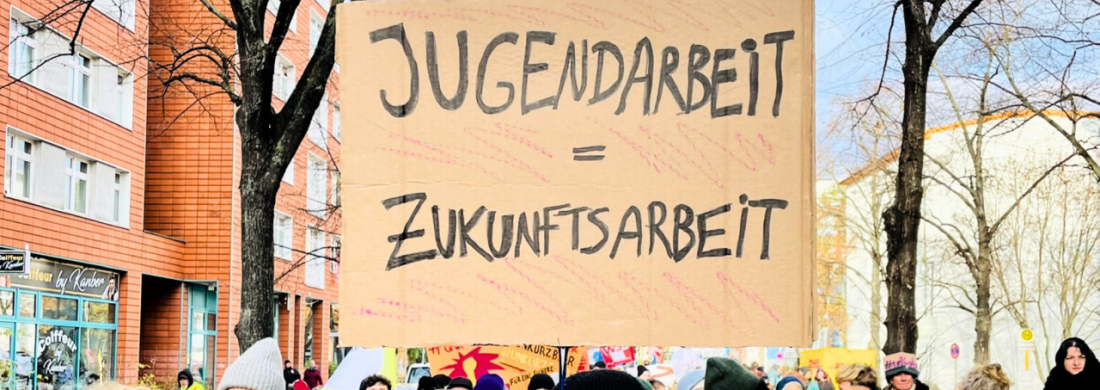 JUGENDARBEiT
=
ZUKUNFTSARBEiT
Coiffeur
Coiffeur by Kanber
Coiffeur